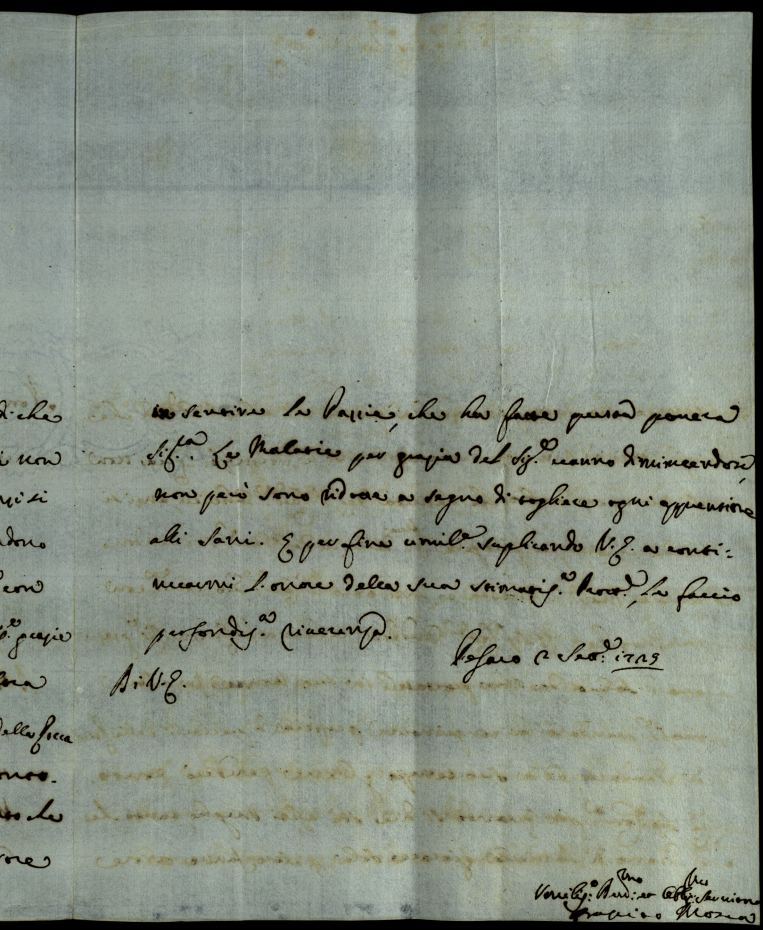 di che
i non
dono
con
grazie
della Rocca
che
in sentire la Pazzia, che ha fatta questa povera
Sig.ra. Le Malatie per grazia del Sig.e vanno diminuendosi,
non però sono ridotte a segno di togliere ogni apprensione
alli sani. E per fine umil.e suplicando V.E. a conti-
nuarmi l'onore della sua stimatis.a Prott.e, le faccio
profondis.a riverenza.
Pesaro 2 Sett.e 1729
Di V.E.
Umilis.o Dev.mo et Obbl.mo Servitore
Mosca